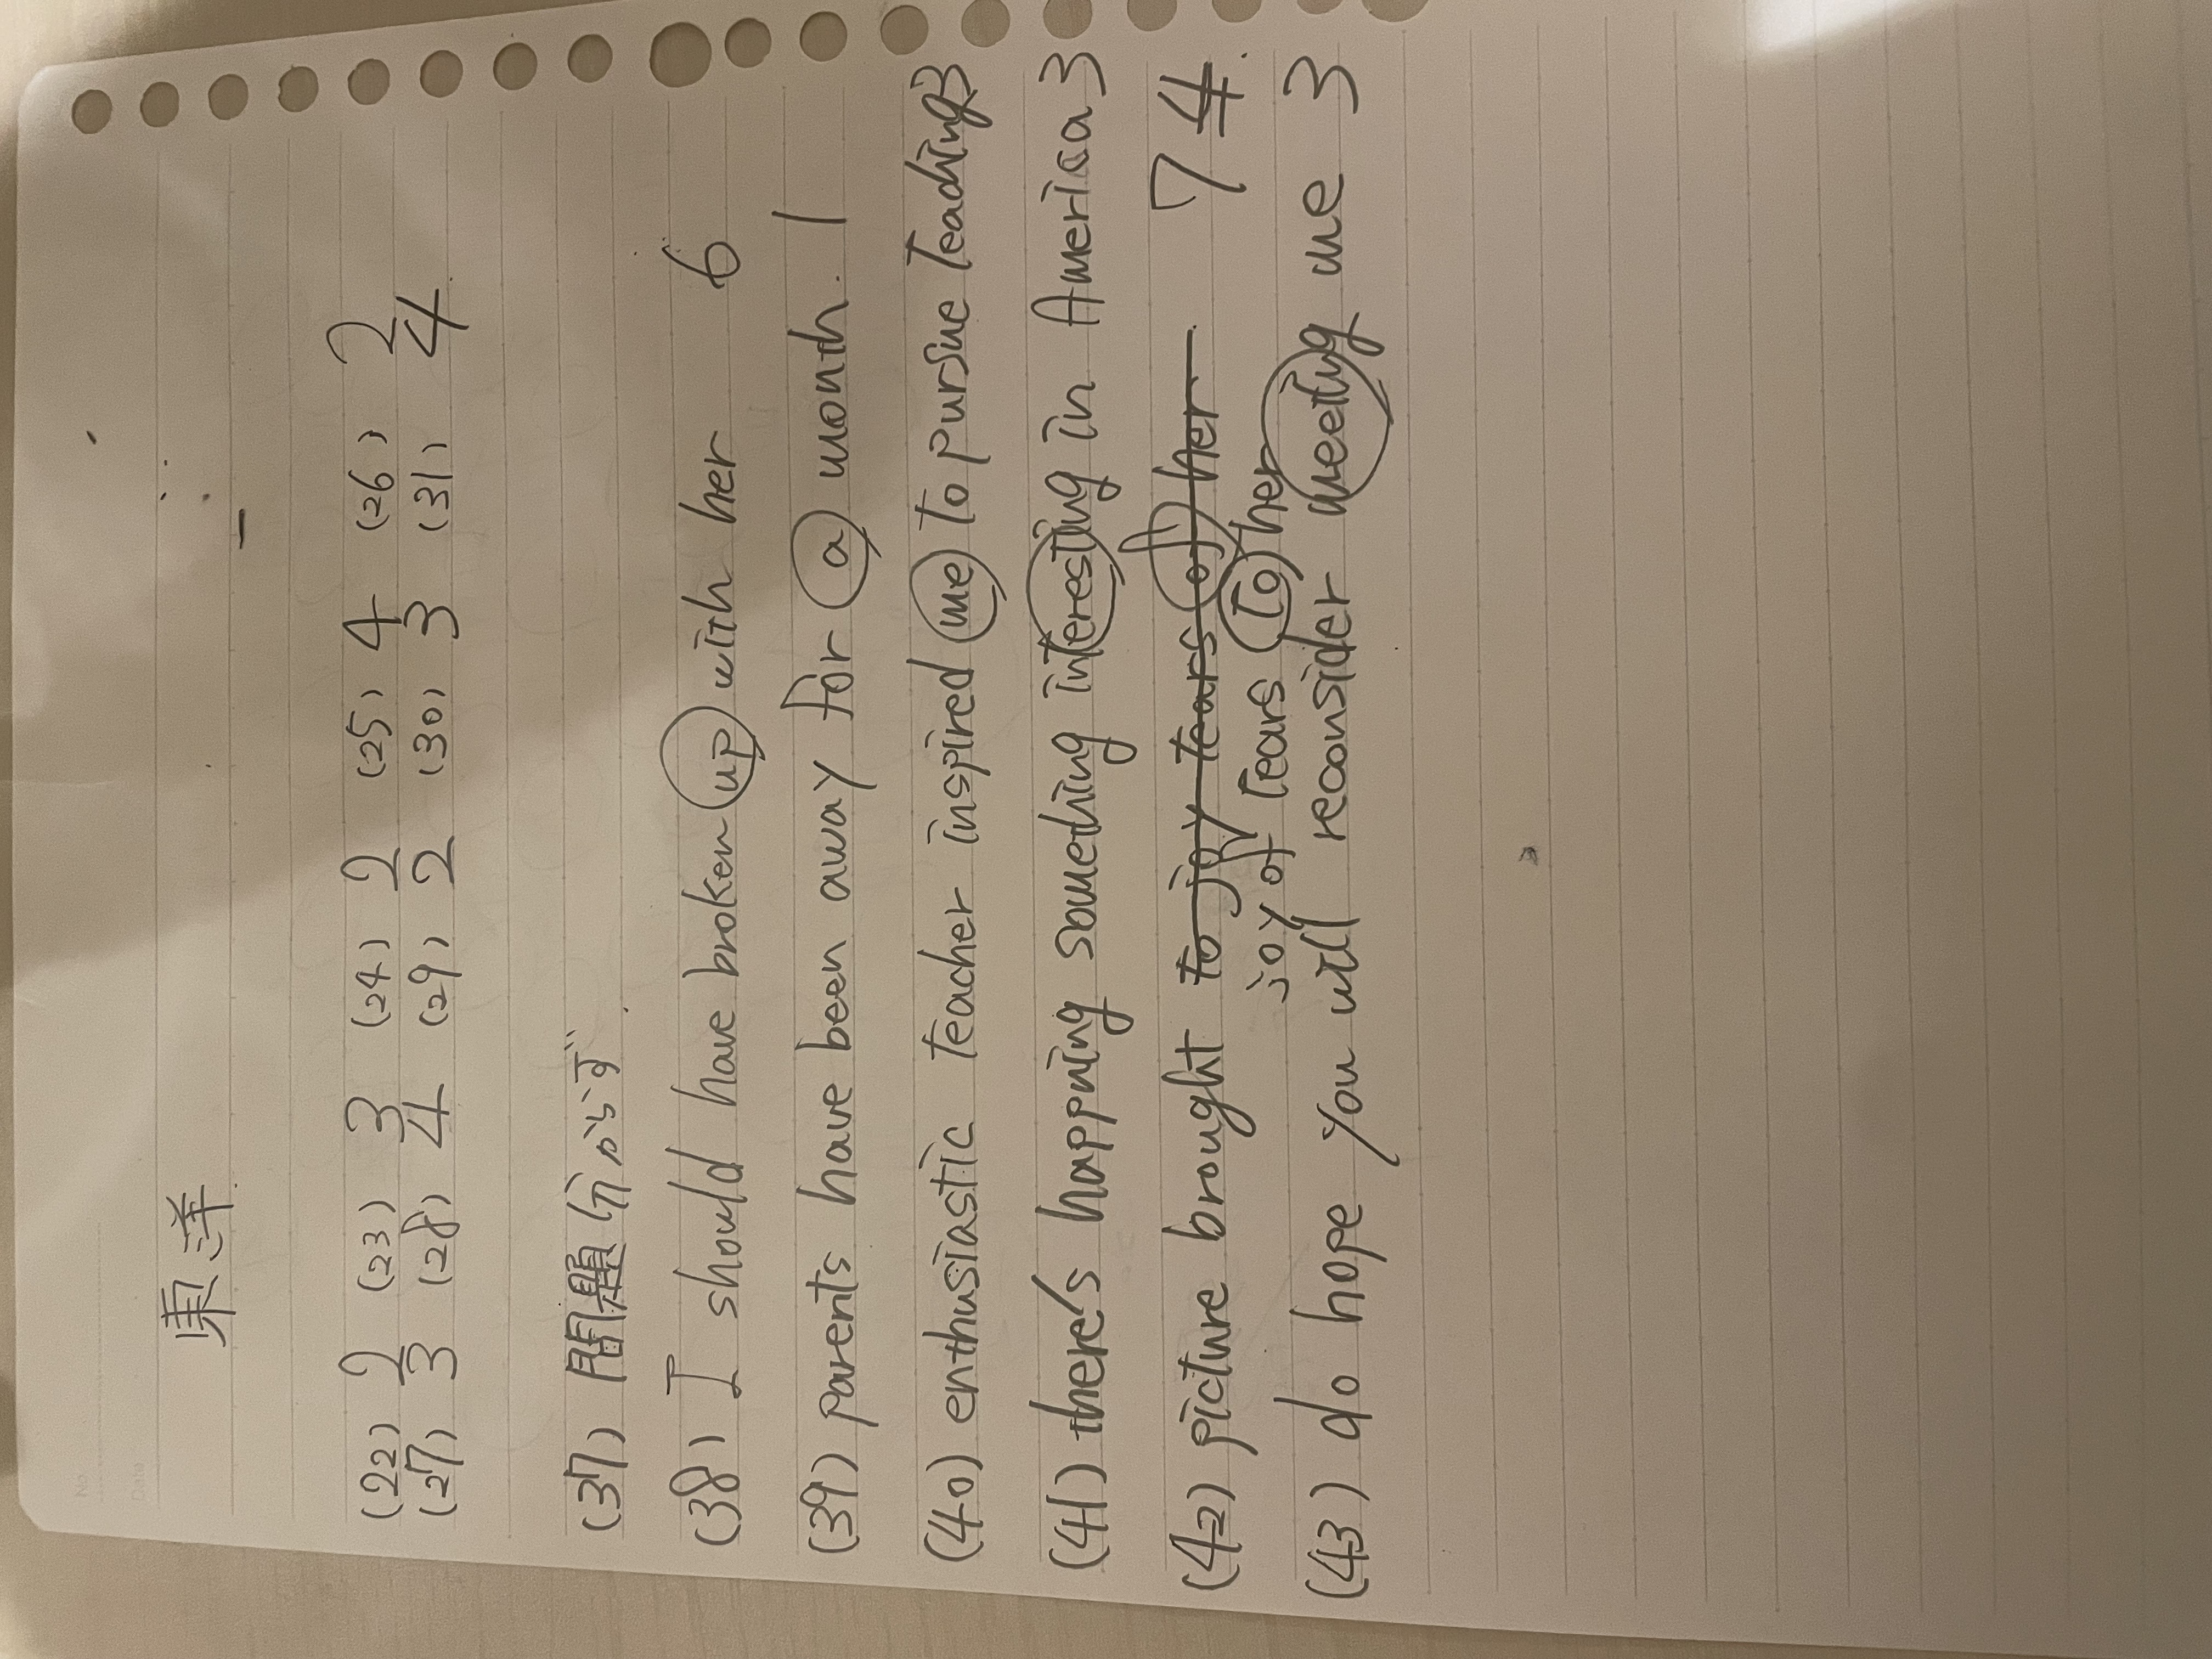 東洋
(22) 2 (23) 3 (24) 2 (25) 4 (26) 2
(27) 3 (28) 4 (29) 2 (30) 3 (31) 4
(37) 問題分からず.
(38) I should have broken up with her 6
(39) parents have been away for a month. 1
(40) enthusiastic teacher inspired me to pursue teaching 3
(41) there's happning something interesting in America 3
(42) picture brought to joy tears of her 7 4
joy of tears to her
(43) do hope you will reconsider meeting me 3